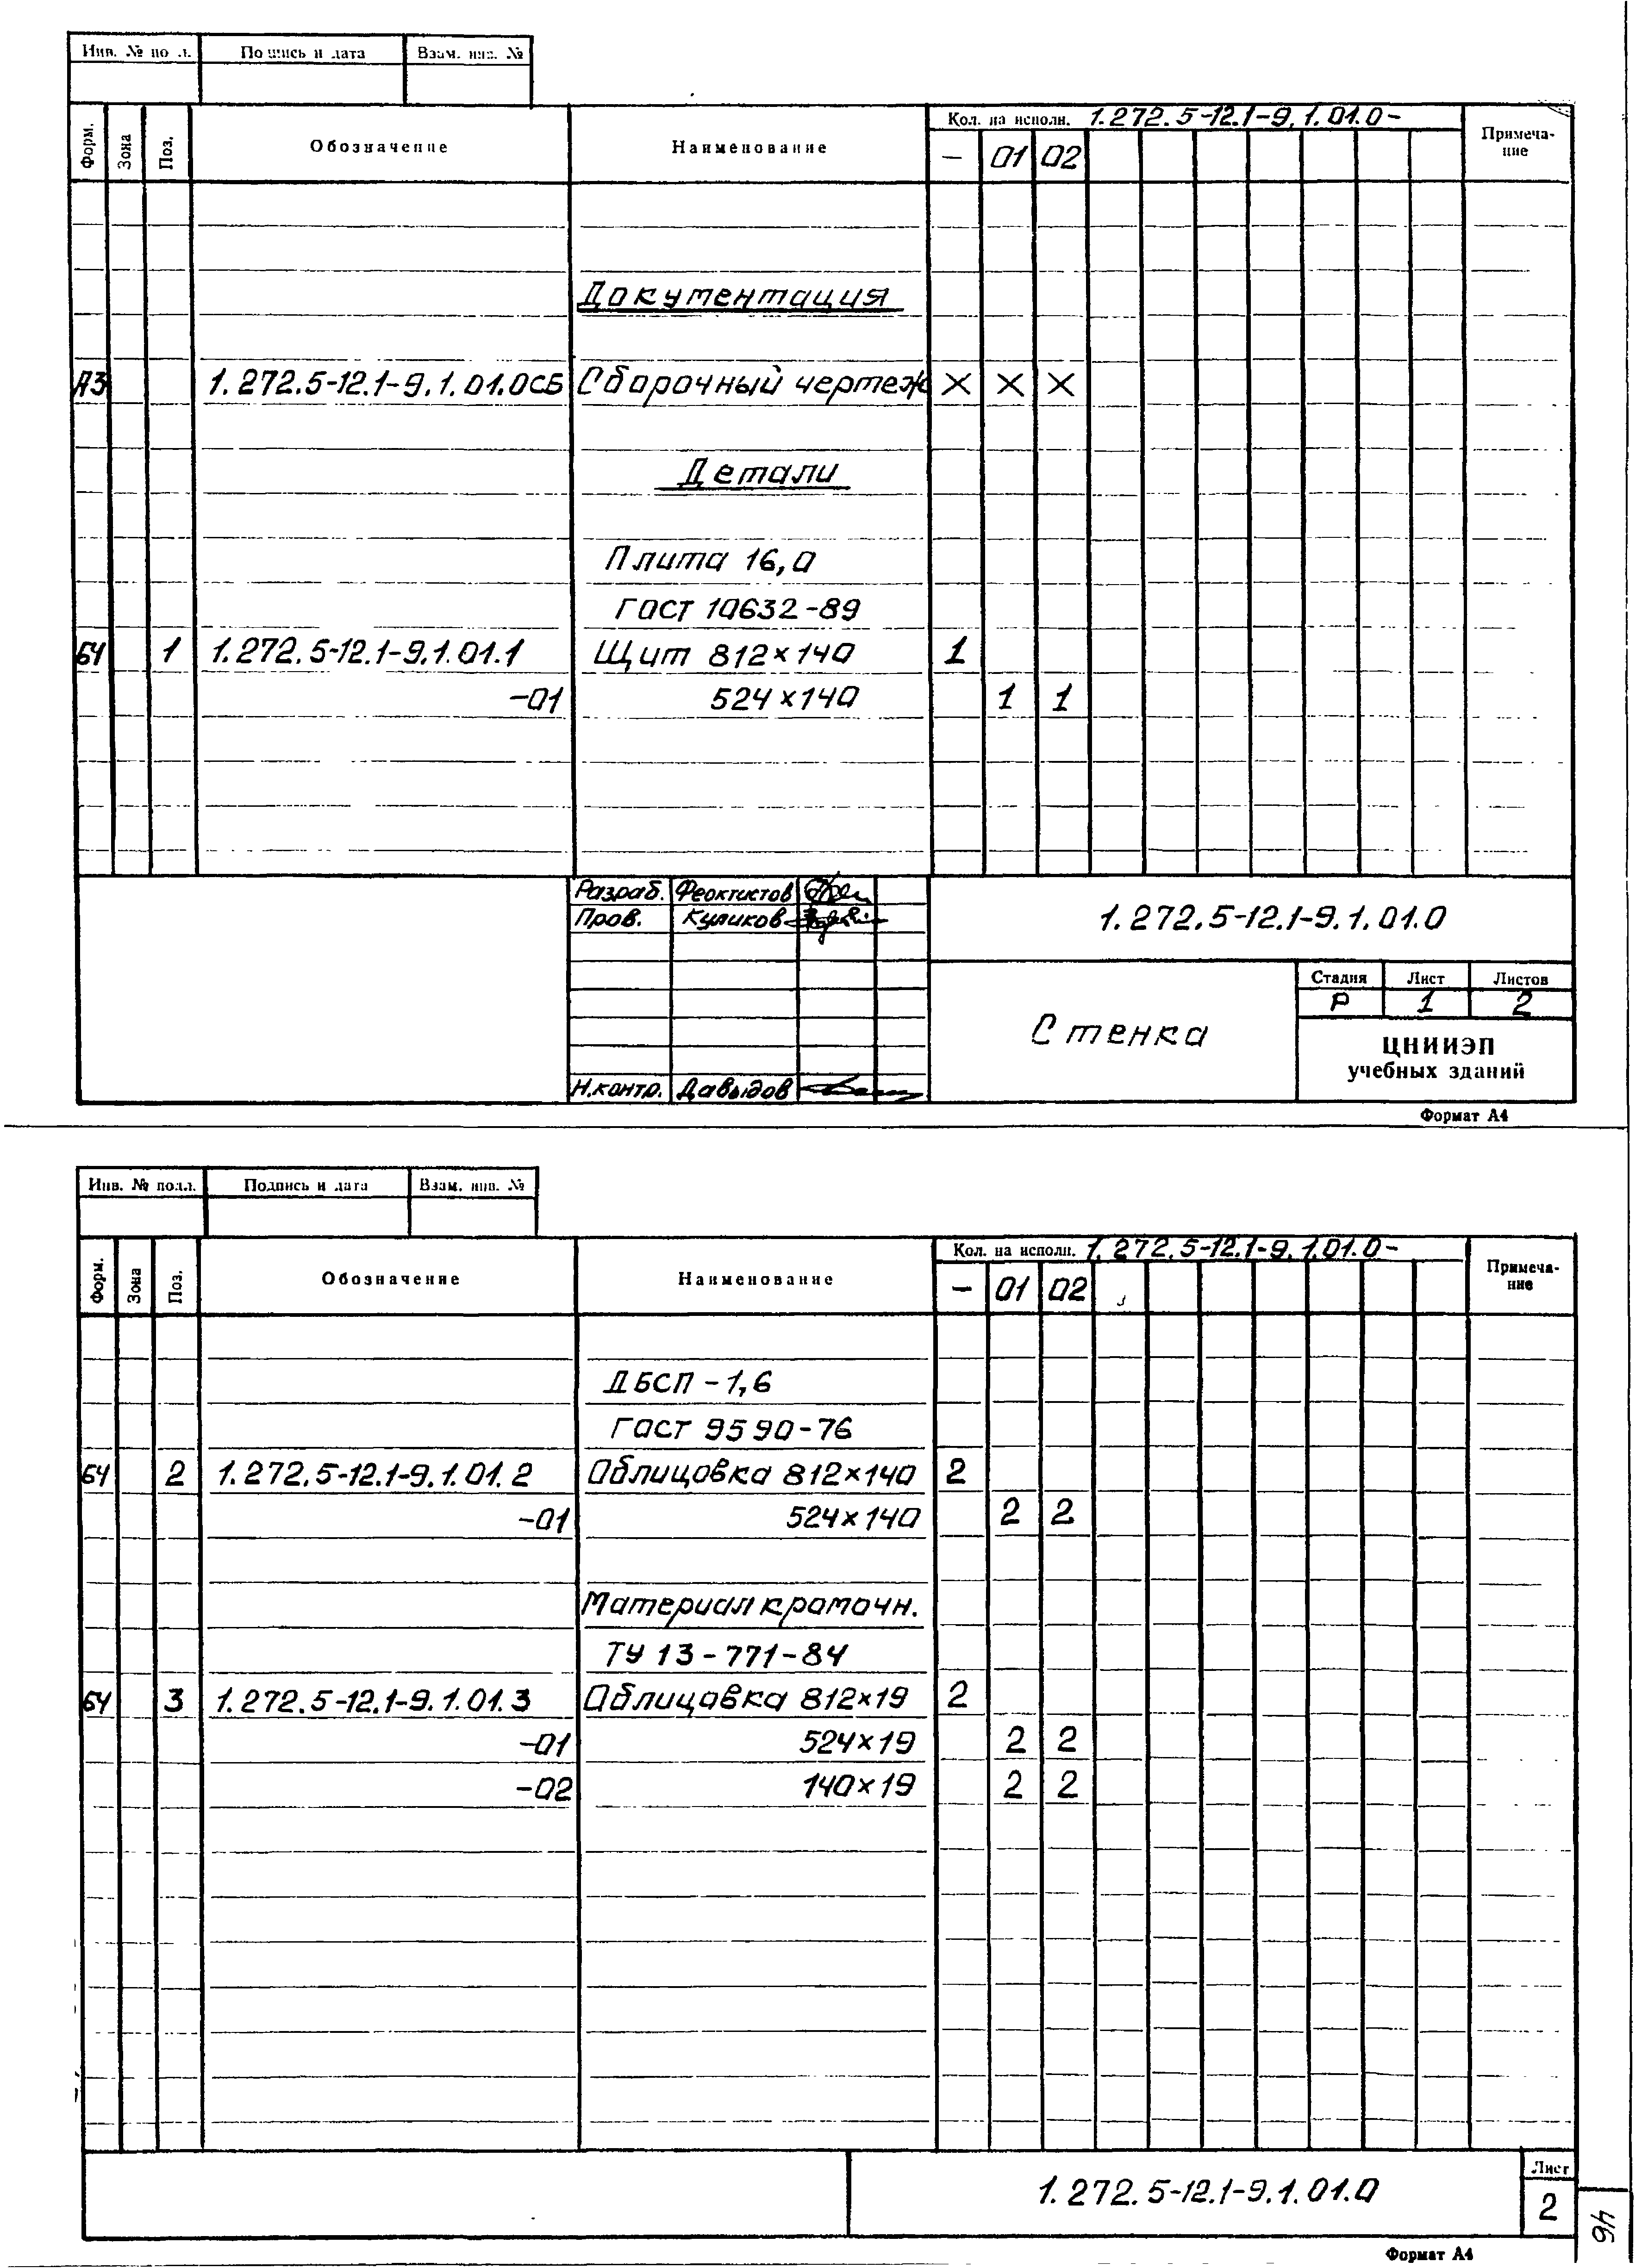 Инв. № подл. Подпись и дата Взам. инв. №
Форм. Зона Поз. Обозначение Наименование Кол. на исполн. 1.272.5-12.1-9.1.01.0- Примеча-
ние
— 01 02
Документация
А3 1.272.5-12.1-9.1.01.0СБ Сборочный чертеж × × ×
Детали
Плита 16,0
ГОСТ 10632-89
БЧ 1 1.272.5-12.1-9.1.01.1 Щит 812×140 1
-01 524×140 1 1
Разраб. Феоктистов
Пров. Куликов
1.272.5-12.1-9.1.01.0
Стадия Лист Листов
Р 1 2
Стенка
ЦНИИЭП
учебных зданий
Н.контр. Давыдов
Формат А4
Инв. № подл. Подпись и дата Взам. инв. №
Форм. Зона Поз. Обозначение Наименование Кол. на исполн. 1.272.5-12.1-9.1.01.0- Примеча-
ние
— 01 02
ДБСП-1,6
ГОСТ 9590-76
БЧ 2 1.272.5-12.1-9.1.01.2 Облицовка 812×140 2
-01 524×140 2 2
Материал кромочн.
ТУ 13-771-84
БЧ 3 1.272.5-12.1-9.1.01.3 Облицовка 812×19 2
-01 524×19 2 2
-02 140×19 2 2
1.272.5-12.1-9.1.01.0
Лист
2
46
Формат А4